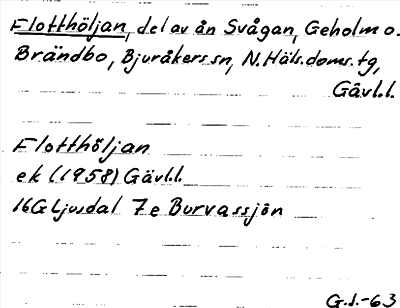 Flotthöljan, del av ån Svågan, Geholm o.
Brändbo, Bjuråkers sn, N. Häls. doms. tg,
Gävl.l.
Flotthöljan
ek (1958) Gävl.l.
16G Ljusdal 7e Burvassjön
G.I.-63